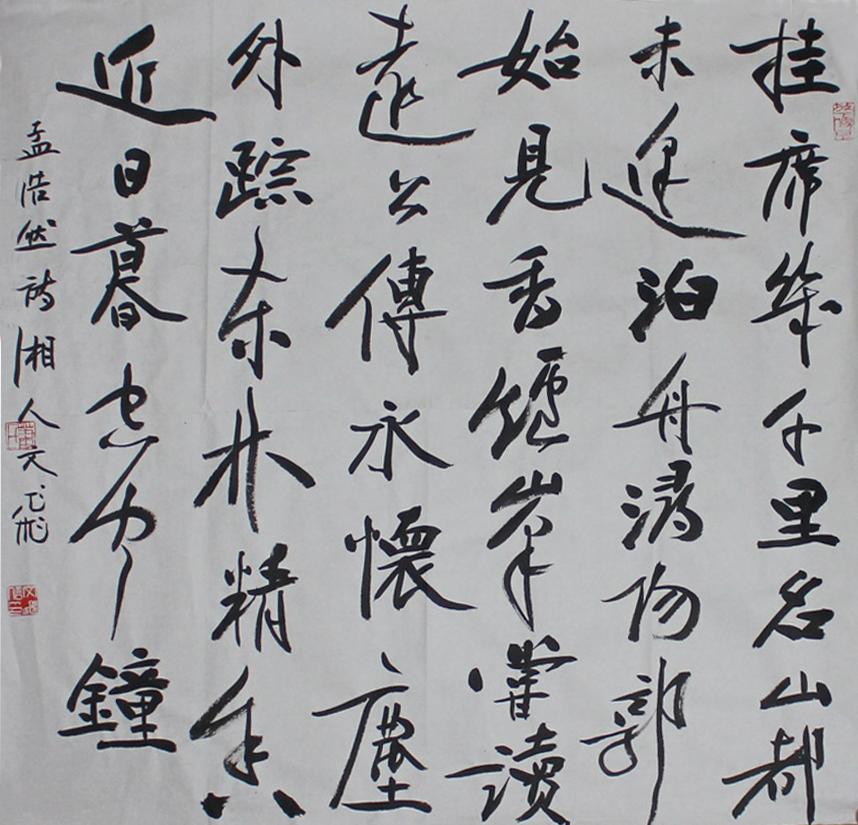 挂席幾千里名山都
未逢泊舟潯陽郭
始見香爐峯嘗讀
遠公傳永懷塵
外踪东林精舍
近日暮空闻鐘
孟浩然詩湘人文飛